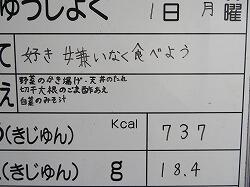 ゅうしょく 1日 月曜
て 好き嫌いなく食べよう
え 野菜のかき揚げ・天丼のたれ
切干大根のごま酢あえ
白菜のみそ汁
(きじゅん) Kcal 737
(きじゅん) g 18.4